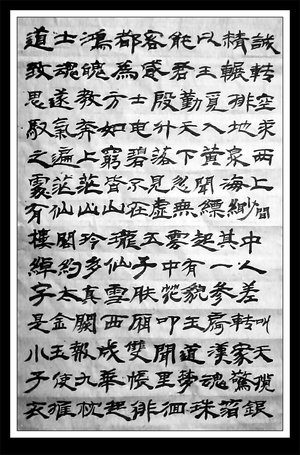 道士鴻都客能以精誠
致魂魄為感君王輾轉
思遂教方士殷勤覓排空
馭氣奔如電升天入地求
之遍上窮碧落下黃泉兩
處茫茫皆不見忽聞海上
有仙山山在虛無縹緲間
樓閣玲瓏五雲起其中
綽約多仙子中有一人
字太真雪膚花貌參差
是金闕西廂叩玉扃轉叫
小玉報成雙聞道漢家天
子使九華帳里夢魂驚攬
衣推枕起徘徊珠箔銀